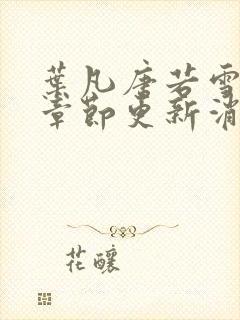 葉凡唐若雪
章節更新消
花釀